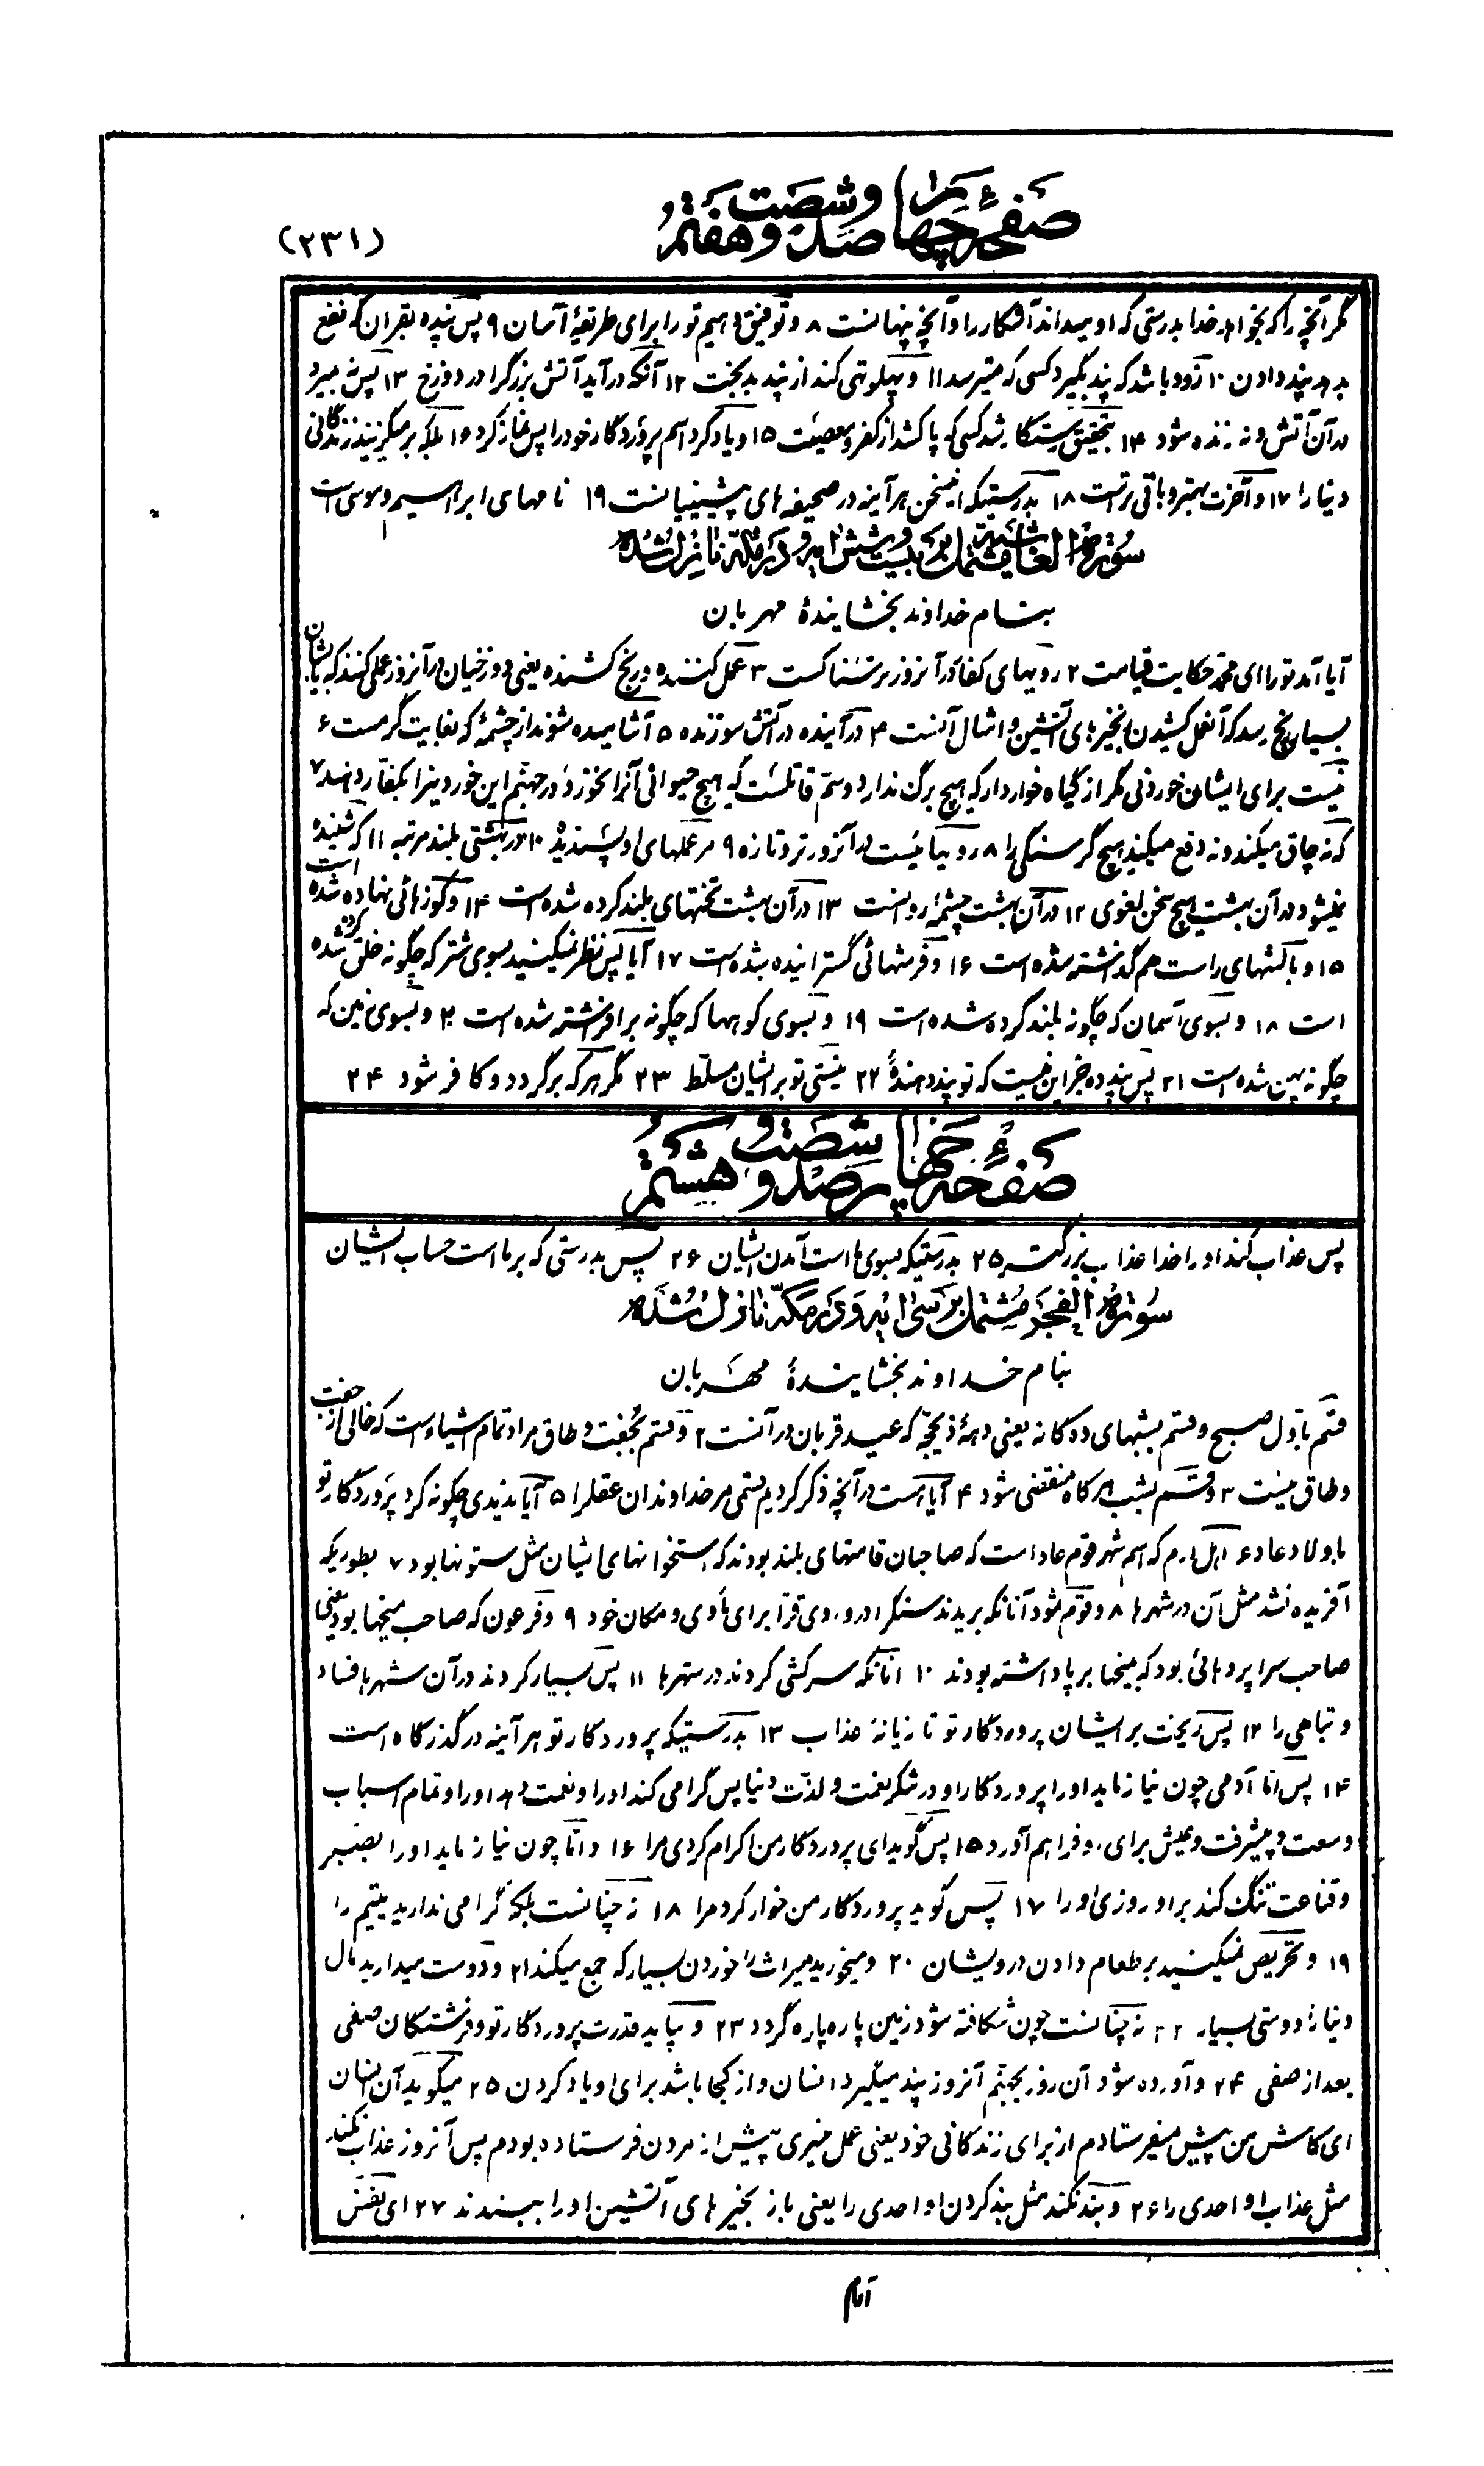 صفحهٔ چهار صد و شصت و هفتم
(۲۳۱)
مگر آنچه را که بخواهد خدا بدرستی که او میداند آشکار را و آنچه پنهانست ۸ و توفیق دهیم تو را برای طریقهٔ آسان ۹ پس پند ده بقرآن که نفع
بدهد پند دادن ۱۰ زود باشد که پند بگیرد کسی که میترسد ۱۱ و پهلو تهی کند از پند بدبخت ۱۲ آنکه درآید آتش بزرگرا در دوزخ ۱۳ پس نه میرد
در آن آتش و نه زنده شود ۱۴ بتحقیق رستگار شد کسی که پاک شد از کفر و معصیت ۱۵ و یاد کرد اسم پروردگار خود را پس نماز کرد ۱۶ بلکه برمیگزینید زندگانی
دنیا را ۱۷ و آخرت بهتر و باقی ترست ۱۸ بدرستیکه اینسخن هر آینه در صحیفه های پیشینیانست ۱۹ نامهای ابراهیم و موسی است
سوره الغاشیه مشتمل بر بیست و شش آیه و در مکه نازل شده
بنام خداوند بخشایندهٔ مهربان
آیا آمد تو را ای محمد حکایت قیامت ۲ رویهای کفار در آنروز ترسناکست ۳ عمل کننده و رنج کشنده یعنی دوزخیان در آنروز عملی کنند که بایشان
بسیار رنج رسد که آنعمل کشیدن زنجیرهای آتشین و امثال آنست ۴ درآینده در آتش سوزنده ۵ آشامیده شوند از چشمهٔ که بغایت گرمست ۶
نیست برای ایشان خوردنی مگر از گیاه خواردار که هیچ برگ ندارد و سم قاتلست که هیچ حیوانی آنرا نخورد و در جهنم این خوردنیرا بکفار دهند ۷
که نه چاق میکند و نه دفع میکند هیچ گرسنگی را ۸ رویها نیست در آنروز تر و تازه ۹ مر عملهای او پسندیده ۱۰ در بهشتی بلند مرتبه ۱۱ که شنیده
نمیشود در آن بهشت هیچ سخن لغوی ۱۲ در آن بهشت چشمهٔ روانست ۱۳ در آن بهشت تختهای بلند کرده شده است ۱۴ و کوزهائی نهاده شده است
۱۵ و بالشهای راست هم گذاشته شده است ۱۶ و فرشهائی گسترانیده شده است ۱۷ آیا پس نظر نمیکنید بسوی شتر که چگونه خلق کرده شده
است ۱۸ و بسوی آسمان که چگونه بلند کرده شده است ۱۹ و بسوی کوهها که چگونه برافراشته شده است ۲۰ و بسوی زمین که
چگونه پهن شده است ۲۱ پس پند ده جز این نیست که تو پند دهندهٔ ۲۲ نیستی تو بر ایشان مسلط ۲۳ مگر هر که برگردد و کافر شود ۲۴
صفحهٔ چهار صد و شصت و هشتم
پس عذاب کند او را خدا عذاب بزرگتر ۲۵ بدرستیکه بسوی ما است آمدن ایشان ۲۶ پس بدرستی که بر ما است حساب ایشان
سوره الفجر مشتمل بر سی آیه و در مکه نازل شده
بنام خداوند بخشایندهٔ مهربان
قسم باول صبح و قسم بشبهای ده گانه یعنی دههٔ ذیحجه که عید قربان در آنست ۲ و قسم بجفت و طاق مراد تمام اشیاء است که خالی از جفت
و طاق نیست ۳ و قسم بشب هرگاه منقضی شود ۴ آیا هست در آنچه ذکر کردیم قسمی مر خداوندان عقلرا ۵ آیا ندیدی چگونه کرد پروردگار تو
باولاد عاد ۶ اهل ارم که اسم شهر قوم عاد است که صاحبان قامتهای بلند بودند که استخوانهای ایشان مثل ستونها بود ۷ بطوریکه
آفریده نشد مثل آن در شهرها ۸ و قوم ثمود آنانکه بریدند سنگرا در وادی قرا برای مأوی و مکان خود ۹ و فرعون که صاحب میخها بود یعنی
صاحب سرا پردهائی بود که بمیخها برپا داشته بودند ۱۰ آنانکه سرکشی کردند در شهرها ۱۱ پس بسیار کردند در آن شهرها فساد
و تباهی را ۱۲ پس ریخت بر ایشان پروردگار تو تازیانهٔ عذاب ۱۳ بدرستیکه پروردگار تو هر آینه در گذرگاه است
۱۴ پس اما آدمی چون نیازماید او را پروردگار او در شکر نعمت و لذت دنیا پس گرامی کند او را و نعمت دهد او را و تمام اسباب
وسعت و پیشرفت و عیش برای او فراهم آورد ۱۵ پس گوید ای پروردگار من اکرام کردی مرا ۱۶ و اما چون نیازماید او را بصبر
و قناعت تنگ کند بر او روزی او را ۱۷ پس گوید پروردگار من خوار کرد مرا ۱۸ نه چنانست بلکه گرامی ندارید یتیم را
۱۹ و تحریص نمیکنید بر طعام دادن درویشان ۲۰ و میخورید میراث را خوردن بسیار که جمع میکند ۲۱ و دوست میدارید مال
دنیا را دوستی بسیار ۲۲ نه چنانست چون شکافته شود زمین پاره پاره گردد ۲۳ و بیاید قدرت پروردگار تو و فرشتگان صفی
بعد از صفی ۲۴ و آورده شود آن روز بجهنم آنروز پند میگیرد انسان و از کجا باشد برای او یاد کردن ۲۵ میگوید آن انسان
ای کاش من پیش میفرستادم از برای زندگانی خود یعنی عمل خیری پیش از مردن فرستاده بودم پس آنروز عذاب نکند
مثل عذاب او احدی را ۲۶ و بند نکند مثل بند کردن او احدی را یعنی با زنجیرهای آتشین او را ببندند ۲۷ ای نفس